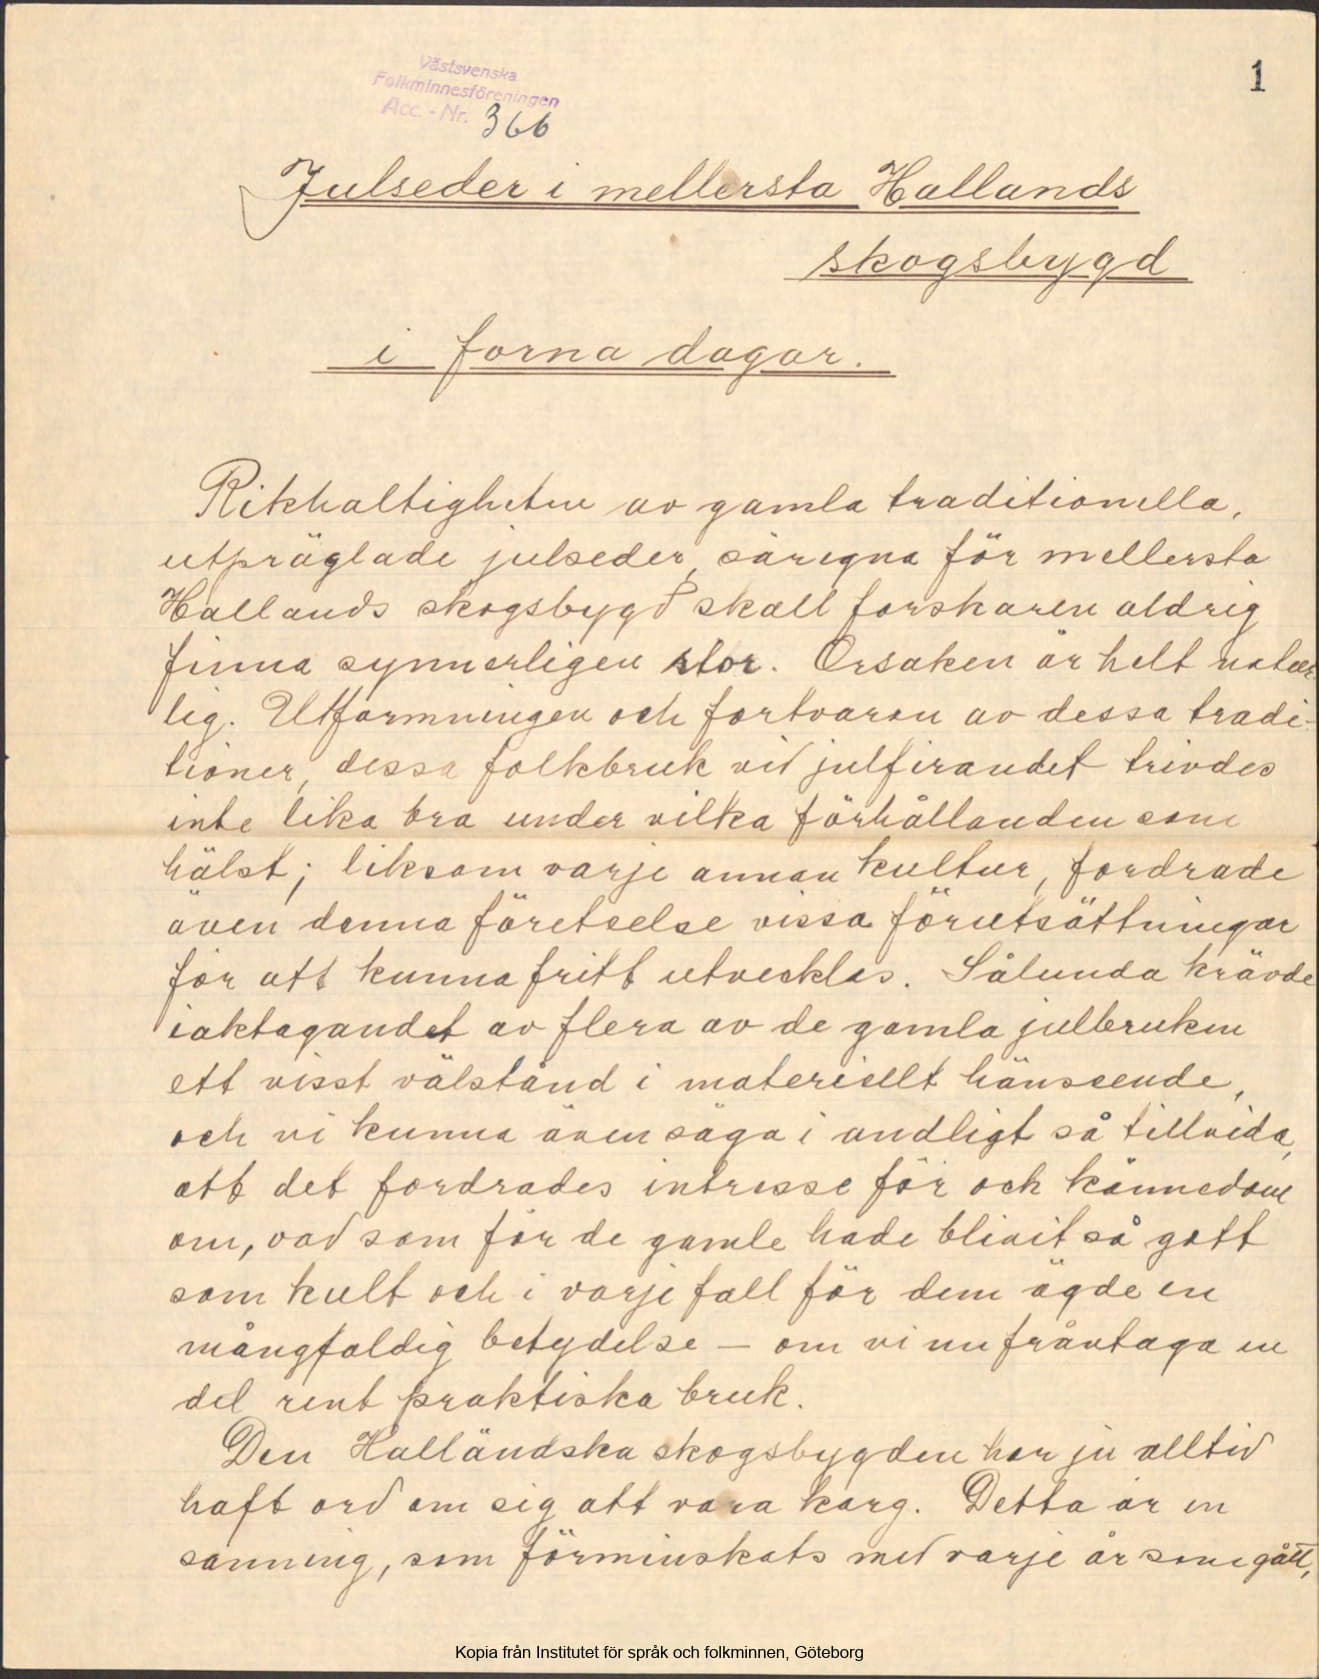 1
Västsvenska
Folkminnesföreningen
Acc.-Nr. 366
Julseder i mellersta Hallands
skogsbygd
i forna dagar.
Rikhaltigheten av gamla traditionella,
utpräglade julseder, säregna för mellersta
Hallands skogsbygd skall forskaren aldrig
finna synnerligen stor. Orsaken är helt natur-
lig. Utformningen och fortvaron av dessa tradi-
tioner, dessa folkbruk vid julfirandet trivdes
inte lika bra under vilka förhållanden som
hälst; liksom varje annan kultur, fordrade
även denna företeelse vissa förutsättningar
för att kunna fritt utvecklas. Sålunda krävde
iaktagandet av flera av de gamla julbruken
ett visst välstånd i materiellt hänseende,
och vi kunna även säga i andligt så tillvida,
att det fordrades intresse för och kännedom
om, vad som för de gamle hade blivit så gott
som kult och i varje fall för dem ägde en
mångfaldig betydelse – om vi nu fråntaga en
del rent praktiska bruk.
Den Halländska skogsbygden har ju alltid
haft ord om sig att vara karg. Detta är en
sanning, som förminskats med varje år som gått,
Kopia från Institutet för språk och folkminnen, Göteborg